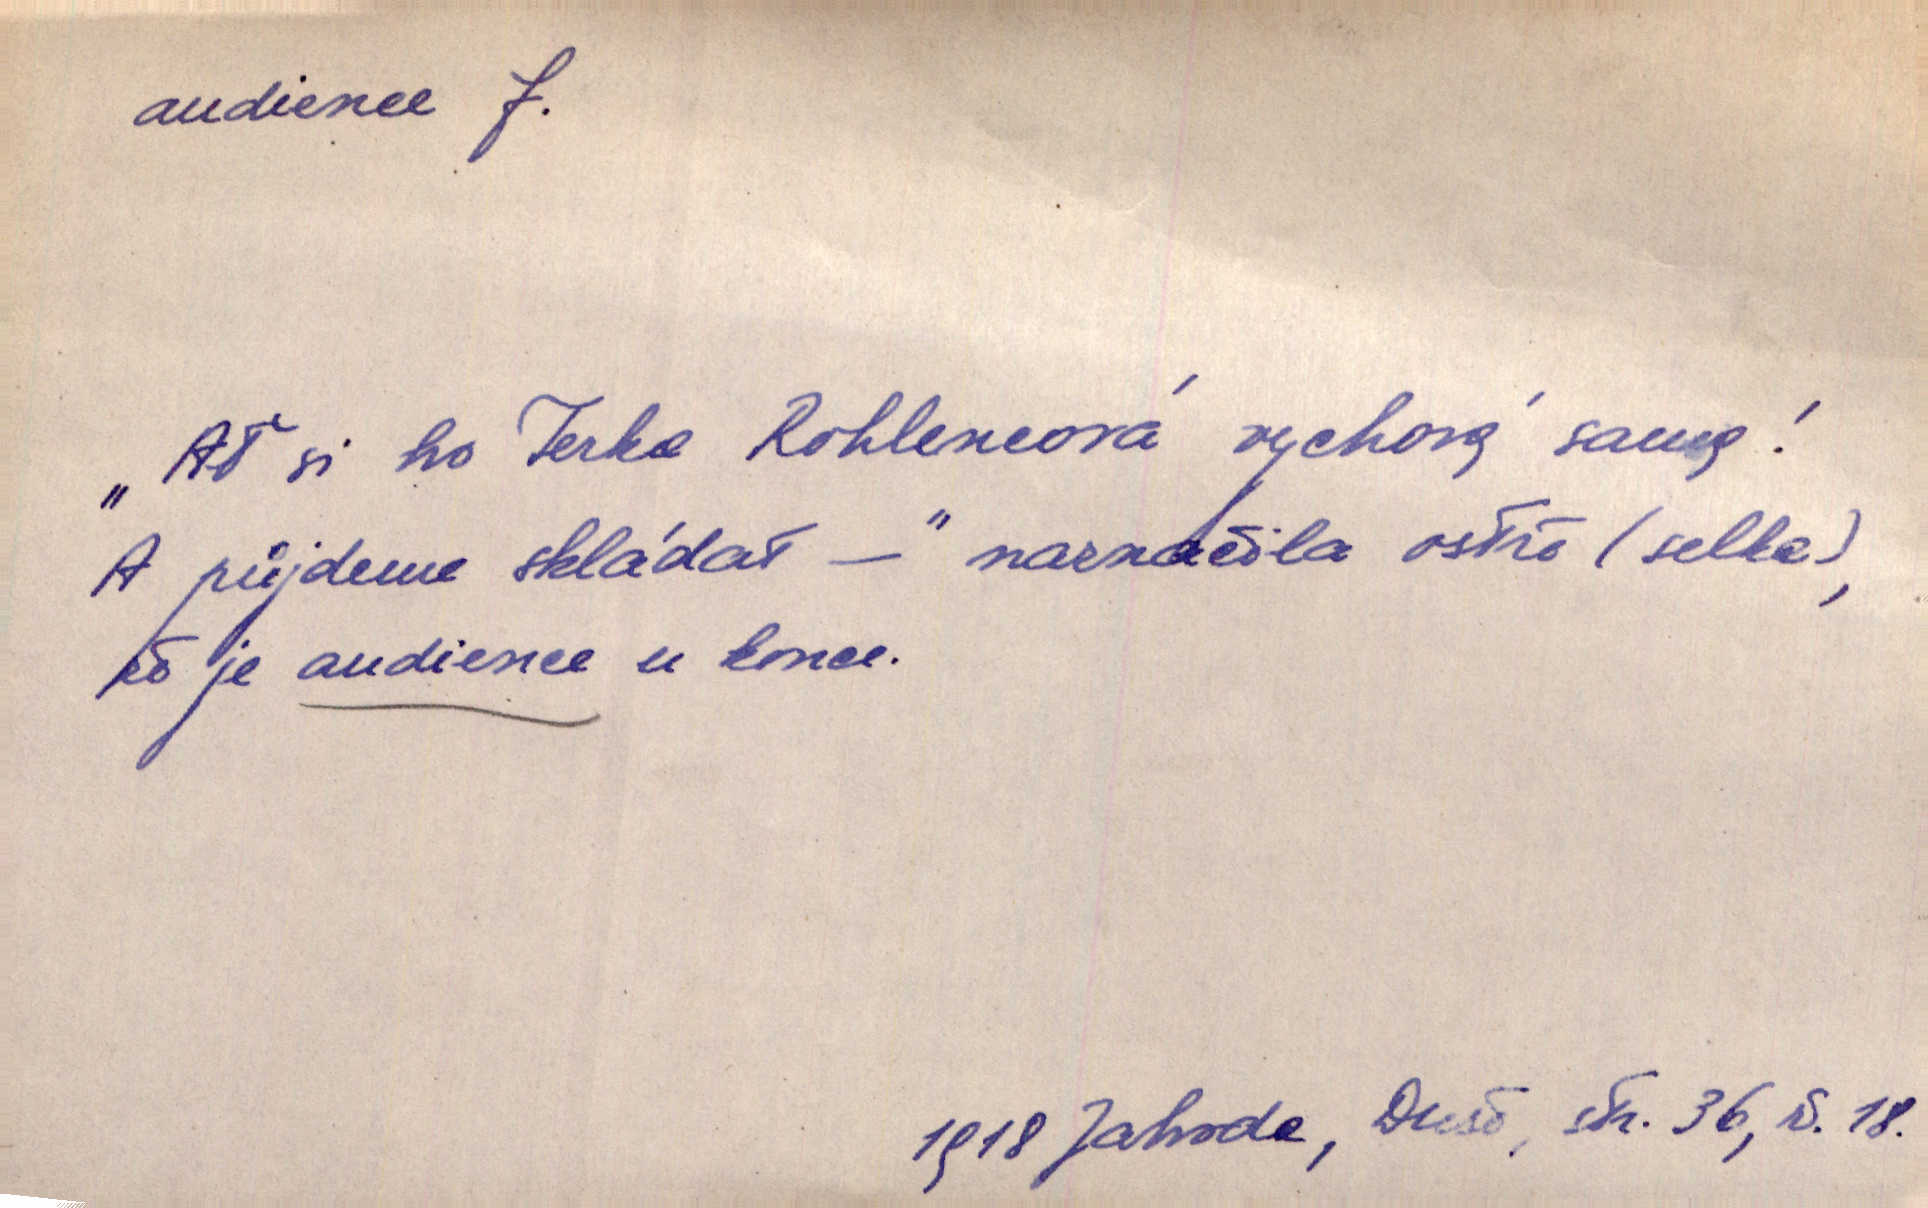 audience f.
„Ať si ho Terka Rohlencová vychová sama!
A půjdeme skládat —" naznačila ostře (selka),
že je audience u konce.
1918 Jahoda, Duše, str. 36, ř. 18.